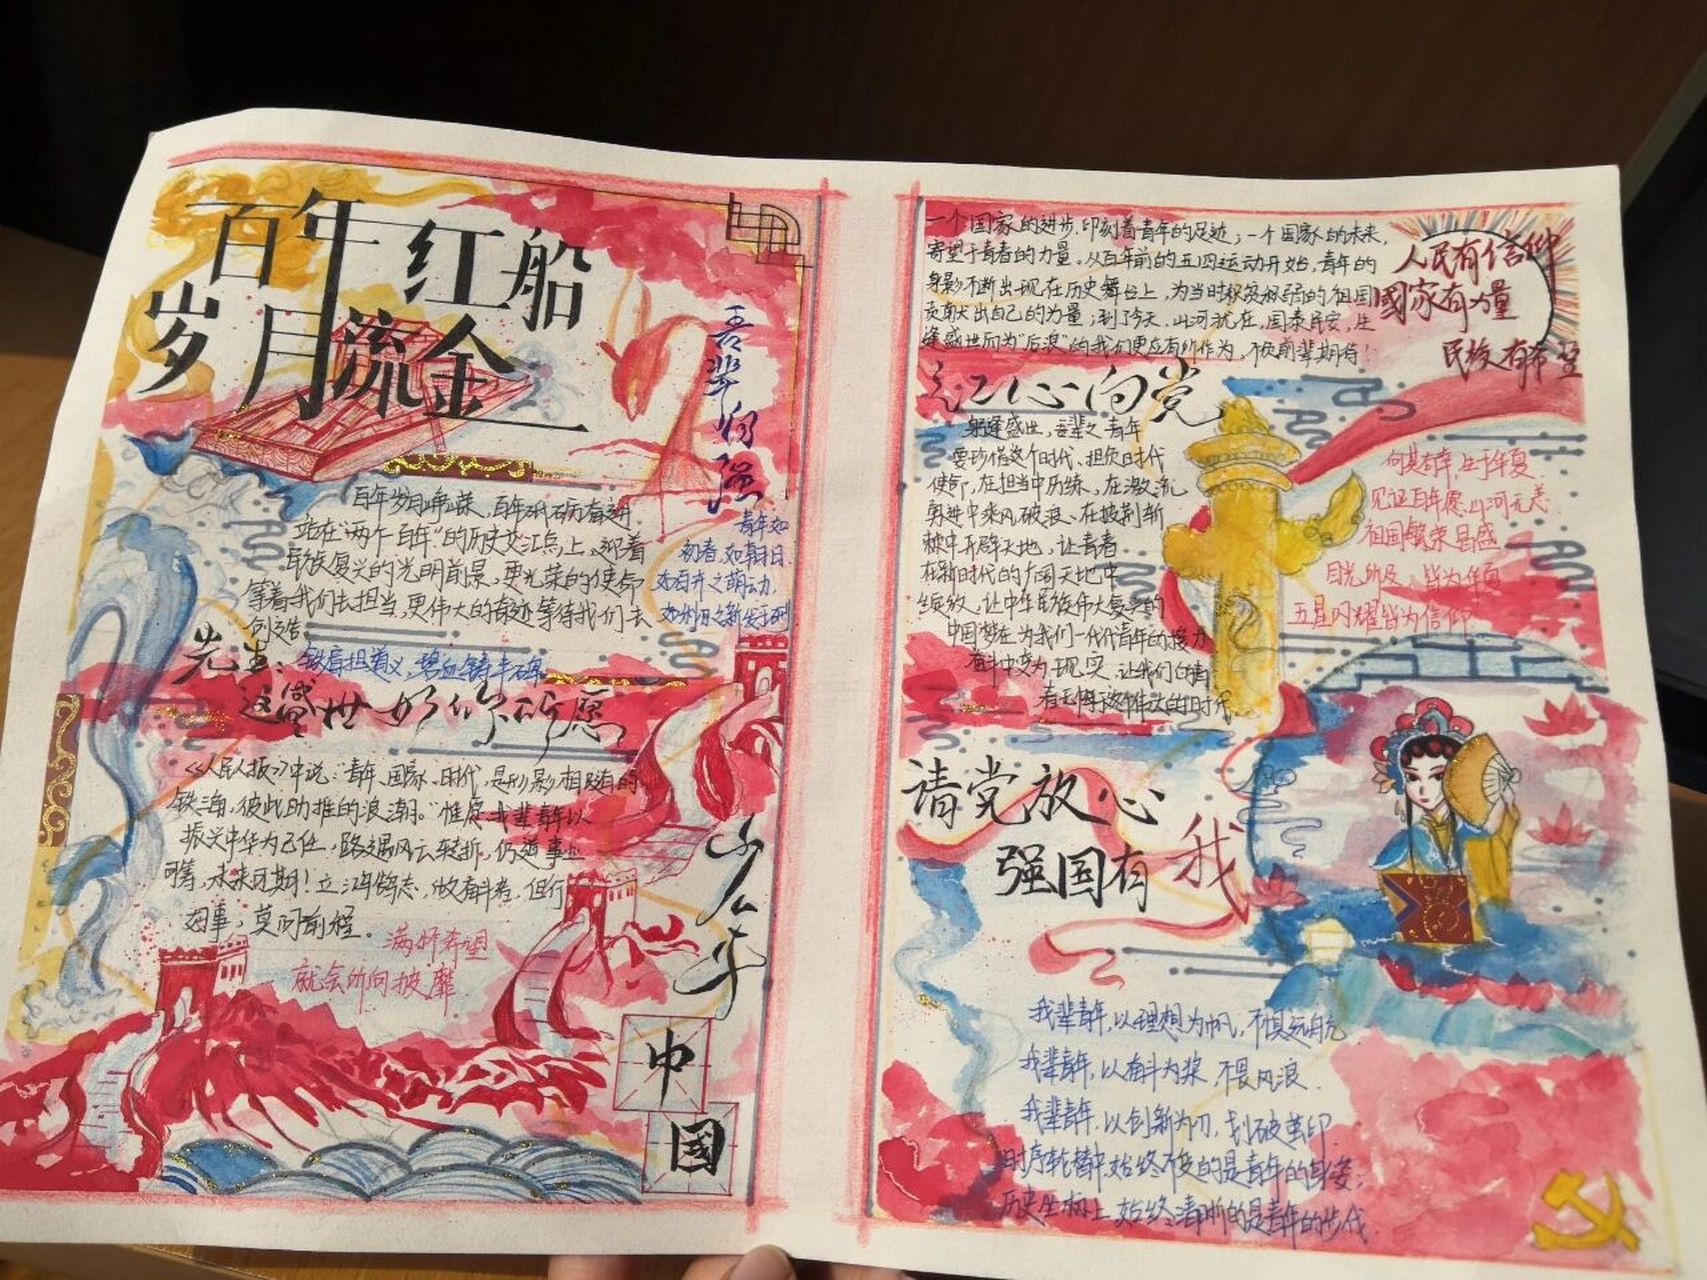 百年红船
岁月流金
吾辈自强
百年岁月峥嵘，百年砥砺奋进
站在"两个百年"的历史交汇点上，迎着
民族复兴的光明前景，更光荣的使命
等着我们去担当，更伟大的奇迹等待我们去
创造。
青年如
初春，如朝日，
如百卉之萌动，
如利刃之新发于硎
先生：
铁肩担道义，碧血铸丰碑
这盛世如你所愿
《人民日报》中说："青年、国家、时代，是形影相随的
铁海，彼此助推的浪潮。"惟愿我辈青年以
振兴中华为己任，路遇风云转折，仍道事业
可筹，未来可期！立鸿鹄志，做奋斗者，但行
好事，莫问前程。
满怀希望
就会所向披靡
少年
中
国
一个国家的进步，印刻着青年的足迹；一个国家的未来，
寄望于青春的力量。从百年前的五四运动开始，青年的
身影不断出现在历史舞台上，为当时积贫积弱的祖国
贡献出自己的力量；到了今天，山河犹在，国泰民安，生
逢盛世而为"后浪"的我们更应有所作为，不负前辈期待！
人民有信仰
國家有力量
民族有希望
红心向党
躬逢盛世，吾辈之青年
要珍惜这个时代、担负时代
使命，在担当中历练，在激流
勇进中乘风破浪、在披荆斩
棘中开辟天地，让青春
在新时代的广阔天地中
绽放，让中华民族伟大复兴的
中国梦在为我们一代代青年的接力
奋斗中变为现实，让我们的青
春无悔于这个伟大的时代
何其有幸，生于华夏
见证百年愿，山河无恙
祖国繁荣昌盛
目光所及，皆为华夏
五星闪耀皆为信仰
请党放心
强国有我
我辈青年，以理想为帆，不惧远航
我辈青年，以奋斗为桨，不畏风浪
我辈青年，以创新为刀，划破茧印
时序轮替中始终不变的是青年的身姿；
历史坐标上始终清晰的是青年的步伐